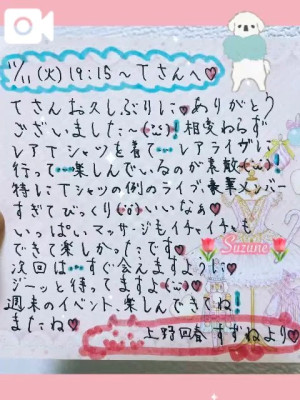 11/11(火)19:15〜Tさんへ♥
Tさんお久しぶりに♥ありがとう
ございました〜(¨)!相変わらず
レアTシャツを着て…レアライヴに
行って…楽しんでいるのが素敵(¨)!
特にTシャツの例のライブ豪華メンバー
すぎてびっくり(¨)!いいなぁ♥
いっぱいマッサージもイチャイチャも
できて楽しかったです♥
次回は…すぐ会えますように♥
ジーッと待ってますよ(¨)♥
週末のイベント楽しんできてね!
またね♥
上野回春 すずねより♥
Suzune